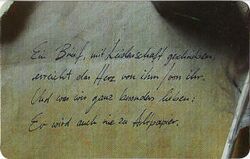 Ein Brief, mit Leidenschaft geschrieben,
erreicht das Herz von ihm von ihr.
Und was wir ganz besonders lieben:
Er wird auch nie zu Altpapier.